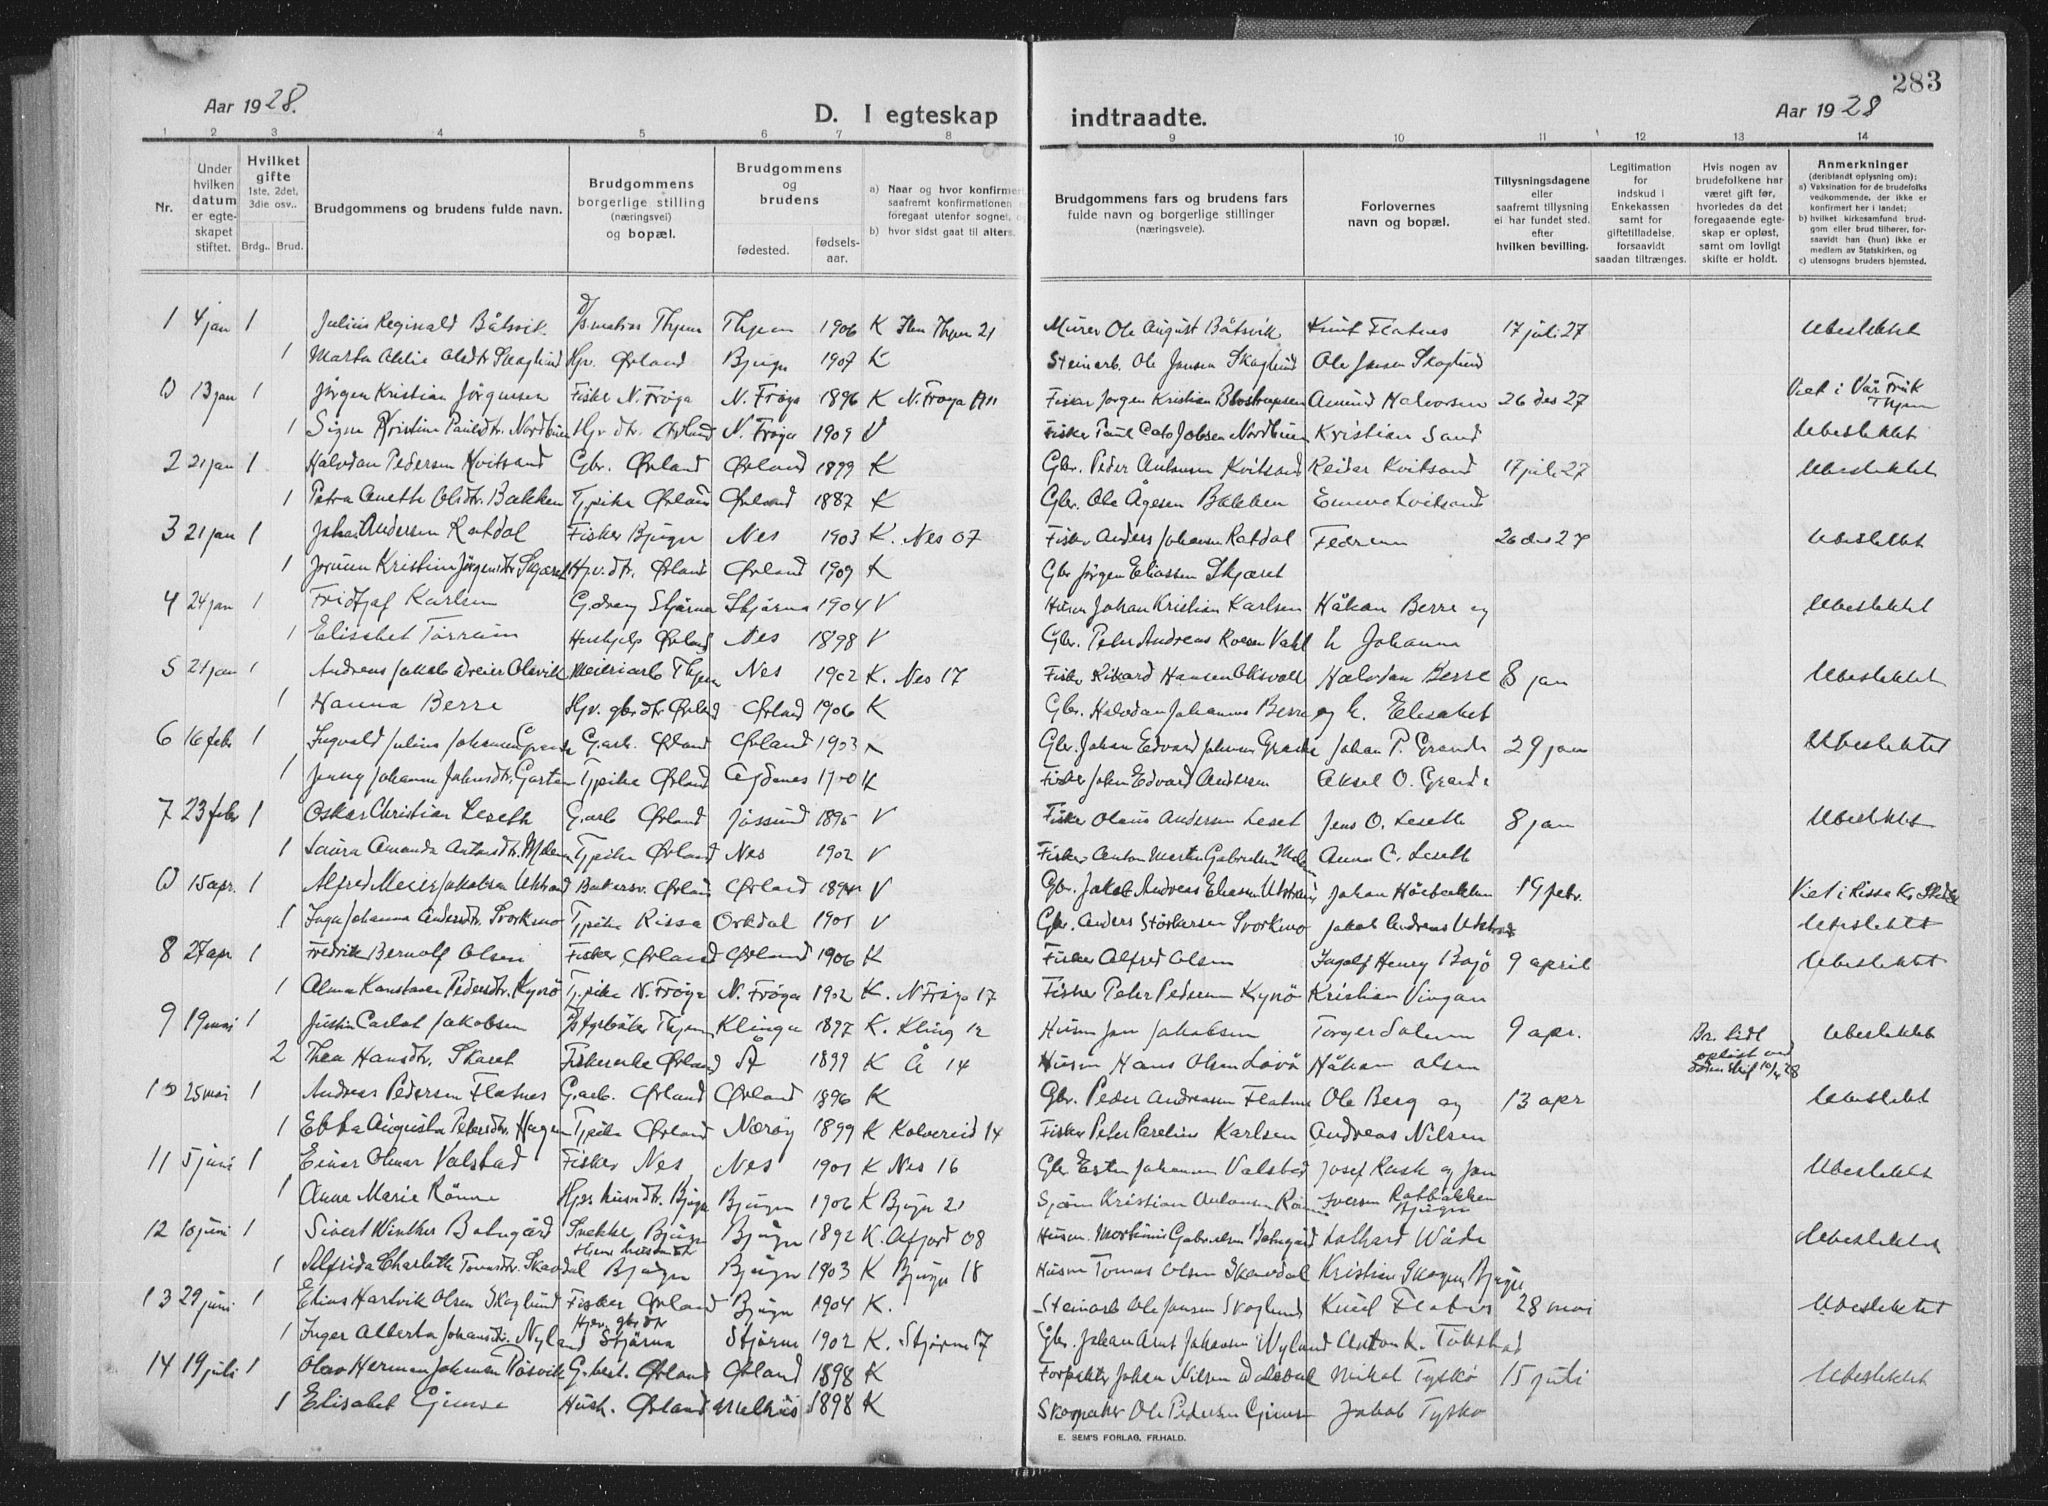 283
Aar 1928.
D. Iegteskap
indtraadte.
Aar 1928
1 2 3 4 5 6 7 8 9 10 11 12 13 14
Nr.
Under hvilken datum er egte-skapet stiftet.
Hvilket gifte
1ste, 2det, 3die osv..
Brdg.. Brud.
Brudgommens og brudens fulde navn.
Brudgommens borgerlige stilling (næringsvei) og bopæl.
Brudgommens og brudens
fødested.
fødsels-aar.
a) Naar og hvor konfirmert
saafremt konfirmationen
foregaat utenfor sognet, og
b) hvor sidst gaat til alters.
Brudgommens fars og brudens fars
fulde navn og borgerlige stillinger
(næringsveie).
Forlovernes
navn og bopæl.
Tillysningsdagene
eller
saafremt tillysning
ei har fundet sted.
efter
hvilken bevilling.
Legitimation
for
indskud i
Enkekassen
samt for
giftetilladelse,
forsaavidt
saadan tiltrænges.
Hvis nogen av
brudefolkene har
været gift før,
hvorledes da det
foregaaende egte-
skap er opløst,
samt om lovligt
skifte er holdt.
Anmerkninger
(deriblandt oplysning om):
a) Vaksination for de brudefolks
vedkommende, der ikke er
konfirmert her i landet;
b) hvilket kirkesamfund brud-
gom eller brud tilhører, for-
saavidt han (hun) ikke er
medlem av Statskirken, og
c) utensogns bruders hjemsted.
1 4 jan 1 Julius Reginald Båtsvik Thjem 1906 K Thjem 21 Murer Ole August Båtsvik Knut Flatnes 17 juli 27 Ubeslektet
1 Marta Oldtr. Skoglund Hjv. Ørland Bjugn 1907 K Steinarb. Ole Jansen Skoglund Ole Jansen Skoglund
0 13 jan 1 Jørgen Kristian Jörgensen Fisker N. Frøya N. Frøya 1896 K N. Frøya 1911 Fisker Jørgen Kristian Amund Halvorsen 26 des 27 Viet i Vår Frue Thjem
1 Signe Kristine Paulsdtr. Nordbuen Hjv. dtr. Ørland N. Frøya 1909 V Fisker Paul Jobsen Nordbuen Kristian Sand Ubeslektet
2 21 jan 1 Halvdan Pedersen Kvitsand Gbr. Ørland Ørland 1899 K Gbr. Peder Antonsen Kvitsand Reidar Kvitsand 17 juli 27 Ubeslektet
1 Petra Aneth Olsdtr. Bakken Tjpike Ørland Ørland 1887 K Gbr. Ole Ågesen Bakken Emma Kvitsand
3 21 jan 1 Johan Andersen Ratdal Fisker Bjugn Nes 1903 K. Nes 07 Fisker Anders Johansen Ratdal Fedrene 26 des 27 Ubeslektet
1 Jorunn Kristine Jörgensdtr. Skjæret Hjv. dtr. Ørland Ørland 1909 K Gbr Jörgen Eliassen Skjæret
4 24 jan 1 Fridtjof Karlsen G.dreng Stjørna Stjørna 1904 V Husm Johan Kristian Karlsen Håkon Berre og Ubeslektet
1 Elisabet Tørrem Hushjelp Ørland Nes 1898 V Gbr. Peter Andreas h. Johanna
5 21 jan 1 Andreas Jakob Olsvik Meieriarb Thjem Nes 1902 K. Nes 17 Fisker Rikard Hansen Halvdan Berre 8 jan Ubeslektet
1 Hanna Berre Hjv. gbrdtr Ørland Ørland 1906 K Gbr. Halvdan Johannes Berre og h. Elisabet
6 16 febr 1 Ingvald Julius Johansen Grande G.arb. Ørland Ørland 1903 K Gbr. Johan Edvard Johansen Grande Johan P. Grande 29 jan Ubeslektet
1 Jenny Johanne Johnsdtr. Garten Tjpike Ørland Agdenes 1900 K Fisker John Edvard Andersen Aksel O. Grande
7 23 febr 1 Oskar Christian Leseth G.arb Ørland Jøssund 1895 V Fisker Olaus Andersen Leset Jens O. Leseth 8 jan Ubeslektet
1 Laura Amanda Antonsdtr. Melem Tjpike Ørland Nes 1902 V Fisker Anton Martin Gabrielsen Anna C. Leseth
0 15 apr. 1 Alfred Meier Jakobsen Utstrand Bakersv. Ørland Ørland V Gbr. Jakob Andreas Eliasen Utstrand Johan Hårbakken 19 febr. Viet i Rissa
1 Inga Johanna Andersdtr. Svorkmo Tjpike Rissa Orkdal 1901 V Gbr. Anders Størkersen Svorkmo Jakob Andreas Utstrand Ubeslektet
8 27 apr 1 Fredrik Bernolf Olsen Fisker Ørland Ørland 1906 K Fisker Alfred Olsen Ingolf Henry Bojö 9 april Ubeslektet
1 Alma Konstanse Pedersdtr. Kynö Tjpike N. Frøya N. Frøya 1902 K. N Frøya 17 Fisker Peter Pedersen Kynö Kristian Vingan
9 19 mai 1 Justin Carlot Jakobsen Thjem Klinga 1897 K. Kling 12 Husm Jan Jakobsen Torger Solem 9 apr. Br. tidl opløst ved 10/4 28 Ubeslektet
2 Thea Hansdtr. Skaret Fiskerenke Ørland Å 1899 K Å 14 Husm Hans Olsen Lovö Håkon Olsen
10 25 mai 1 Andreas Pedersen Flatnes G.arb. Ørland Ørland 1896 K Gbr. Peder Andreasen Flatnes Ole Berg og 13 apr Ubeslektet
1 Ebba Augusta Petersdtr. Hagen Tjpike Ørland Nærøy 1899 K Kolvereid 14 Fisker Peter Parelius Karlsen Andreas Nilsen
11 5 juni 1 Einar Olmar Valstad Fisker Nes Nes 1901 K Nes 16 Gbr Johannesen Valstad Josef Rask og Jan Ubeslektet
1 Anna Marie Rönne Bjugn Bjugn 1906 K Bjugn 21 Kristian Antonsen Iversen Ratbakken Bjugn
12 10 juni 1 Sivert Winther Botngård Snekker Bjugn Bjugn 1892 K. Åfjord 08 Husm. Mortinus Gabrielsen Botngård Lothard Wåde Ubeslektet
1 Alfrida Charlotte Tomsdtr. Skavdal Hjem. husmdtr Bjugn Bjugn 1903 K Bjugn 18 Husm Tomas Olsen Skavdal Kristian Skogen Bjugn
13 29 juni 1 Elias Hartvik Olsen Skoglund Fisker Ørland Bjugn 1904 K. Steinarb Ole Jansen Skoglund Knut Flatnes 28 mai Ubeslektet
1 Inger Alberta Johansdtr. Nyland Hjv. gbrdtr Stjørna Stjørna 1902 K. Stjørna 17 Gbr. Johan Arnt Johansen Nyland Anton K.
14 19 juli 1 Olav Herman Johansen Gbest. Ørland Ørland 1898 K Forpakter Johan Nilsen Mikal Tyskø 15 juli Ubeslektet
1 Elisabet Gimse Hush. Ørland Melhus 1898 K Skomaker Ole Pedersen Gimse Jakob Tyskø
E. SEM'S FORLAG, FR.HALD.